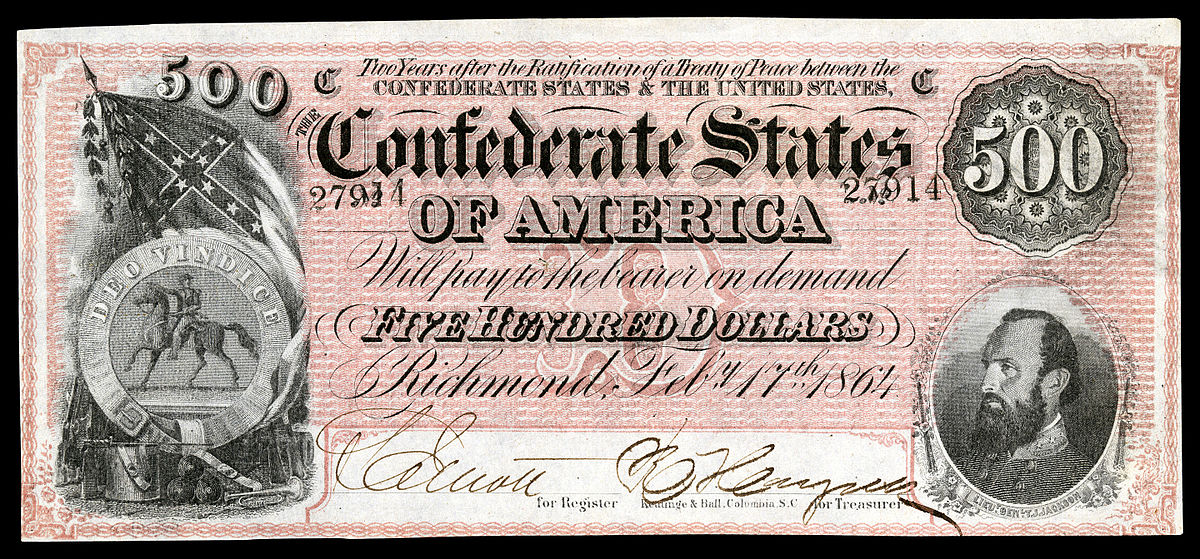 500
C Two Years after the Ratification of a Treaty of Peace between the C
CONFEDERATE STATES & THE UNITED STATES,
THE
Confederate States
500
27914 27914
OF AMERICA
DEO VINDICE
Will pay to the bearer on demand
FIVE HUNDRED DOLLARS
Richmond, Feby. 17th 1864
for Register Keatinge & Ball, Columbia, S.C. for Treasurer
LIEUT. GEN. T. J. JACKSON